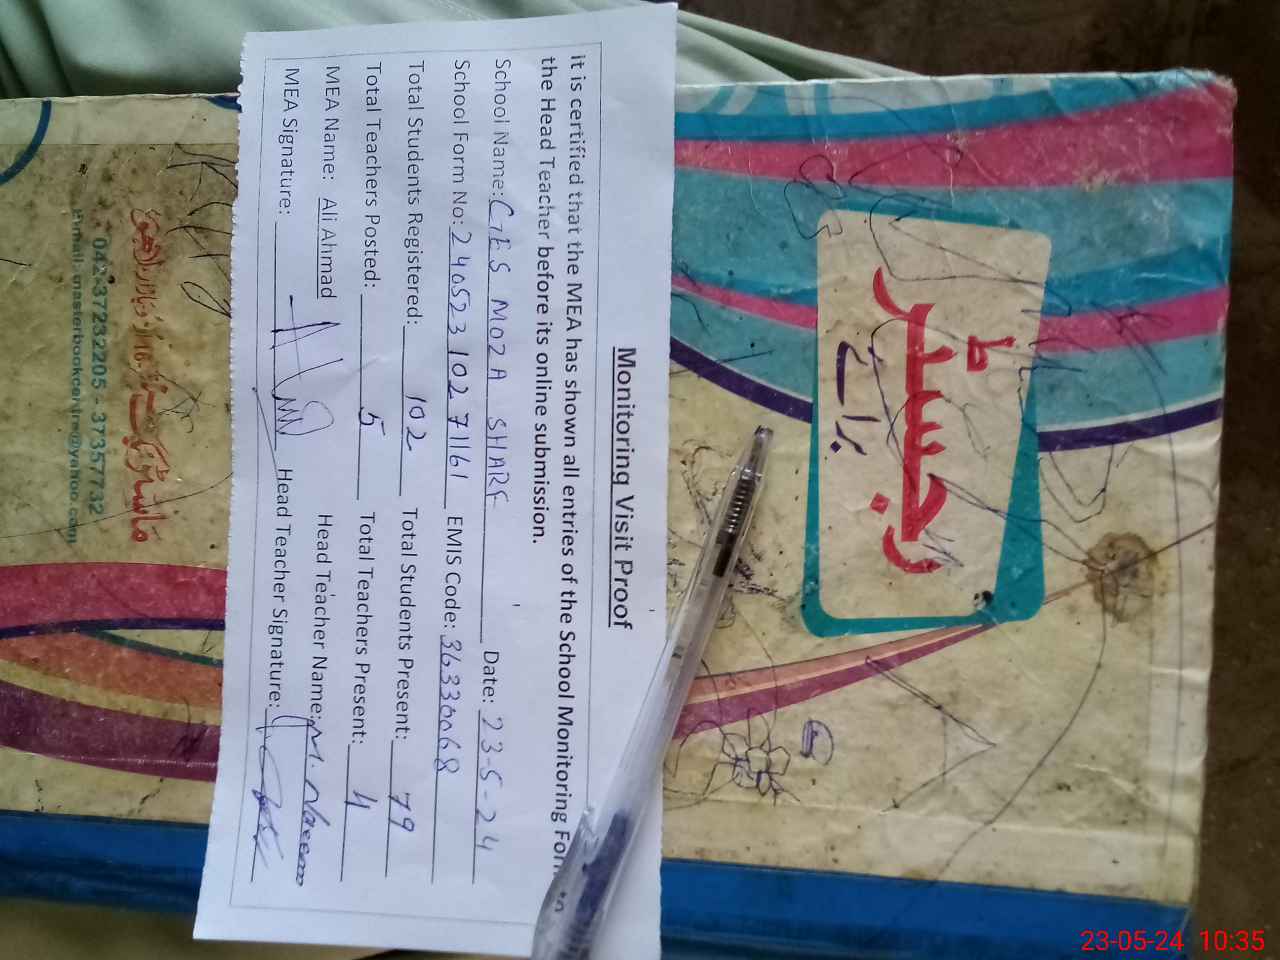 Monitoring Visit Proof
it is certified that the MEA has shown all entries of the School Monitoring Form to
the Head Teacher before its online submission.
School Name: GES MOZA SHARF Date: 23-5-24
School Form No: 24052310271161 EMIS Code: 36330068
Total Students Registered: 102 Total Students Present: 79
Total Teachers Posted: 5 Total Teachers Present: 4
MEA Name: Ali Ahmad Head Teacher Name: M. Naeem
MEA Signature: Head Teacher Signature:
رجسٹر
برائے
042-37232205 - 37357732
Email: masterbookcentre@yahoo.com
23-05-24 10:35